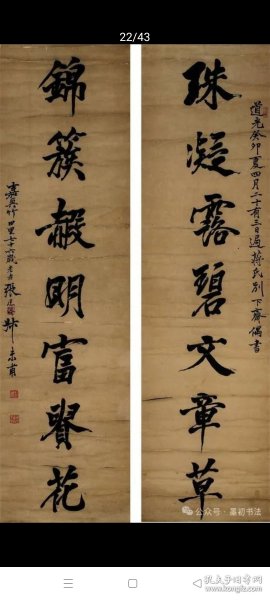 22/43
道光癸卯夏四月二十有三日過蔣氏別下齋偶書
珠凝露碧文章草
錦簇赮明富貴花
嘉興竹田里七十六歲老者張廷濟叔未甫
公众号·墨初书法
孔夫子旧书网